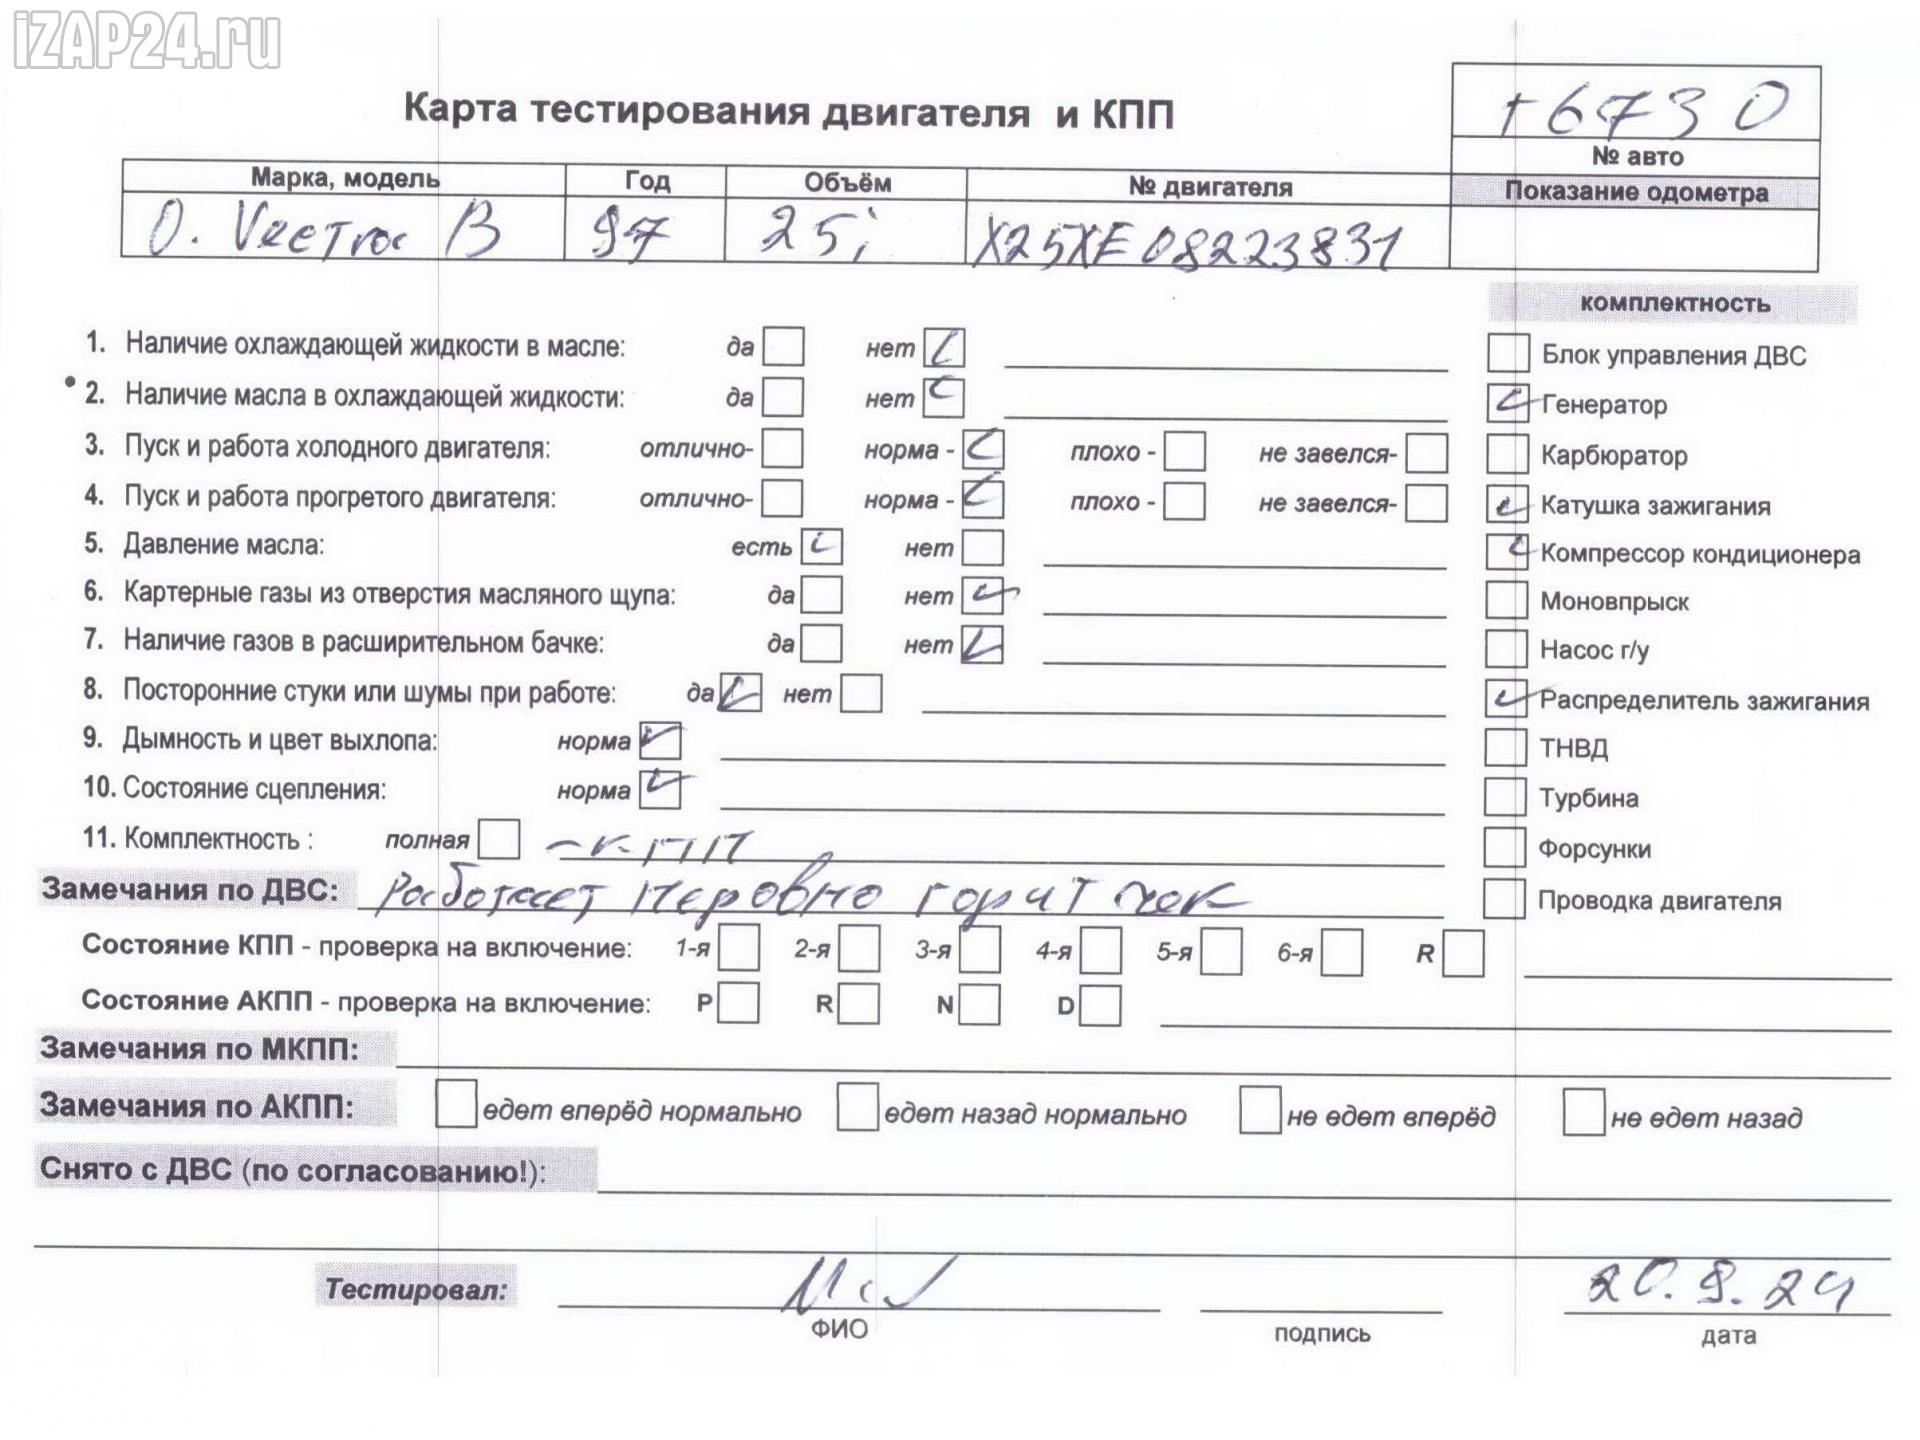 iZAP24.ru
Карта тестирования двигателя и КПП
+6730
№ авто
Марка, модель Год Объём № двигателя Показание одометра
O. Vectra B 97 25i X25XE08223831
комплектность
1. Наличие охлаждающей жидкости в масле: да нет
Блок управления ДВС
2. Наличие масла в охлаждающей жидкости: да нет
Генератор
3. Пуск и работа холодного двигателя: отлично- норма - плохо - не завелся-
Карбюратор
4. Пуск и работа прогретого двигателя: отлично- норма - плохо - не завелся-
Катушка зажигания
5. Давление масла: есть нет
Компрессор кондиционера
6. Картерные газы из отверстия масляного щупа: да нет
Моновпрыск
7. Наличие газов в расширительном бачке: да нет
Насос г/у
8. Посторонние стуки или шумы при работе: да нет
Распределитель зажигания
9. Дымность и цвет выхлопа: норма
ТНВД
10. Состояние сцепления: норма
Турбина
11. Комплектность : полная -КПП
Форсунки
Замечания по ДВС: Работает неровно горит чек
Проводка двигателя
Состояние КПП - проверка на включение: 1-я 2-я 3-я 4-я 5-я 6-я R
Состояние АКПП - проверка на включение: P R N D
Замечания по МКПП:
Замечания по АКПП: едет вперёд нормально едет назад нормально не едет вперёд не едет назад
Снято с ДВС (по согласованию!):
Тестировал: 20.9.24
ФИО подпись дата